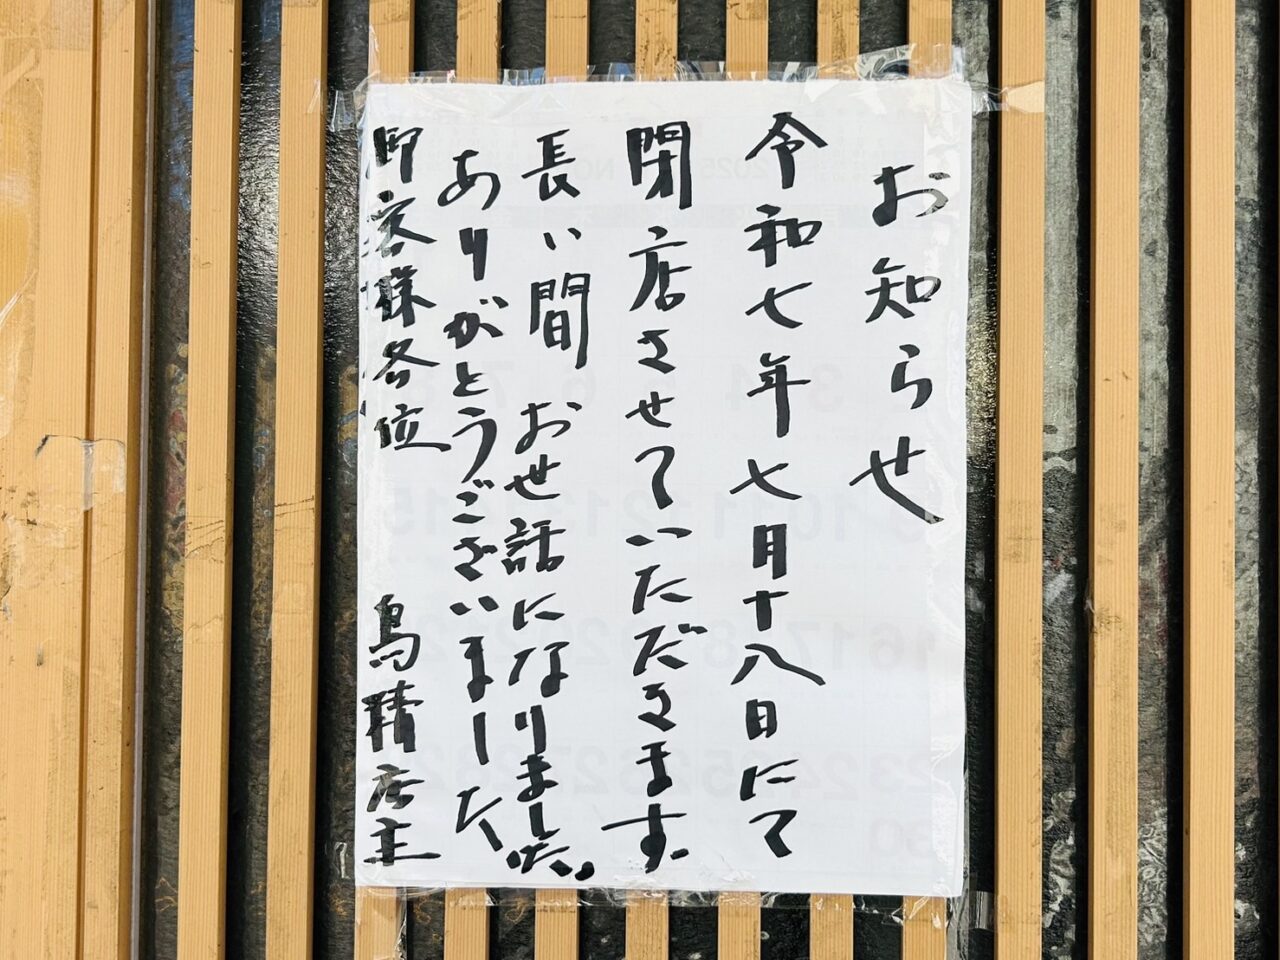 お知らせ
令和七年七月十八日にて
閉店させていただきます
長い間 お世話になりました。
ありがとうございました
御客様各位 鳥精店主